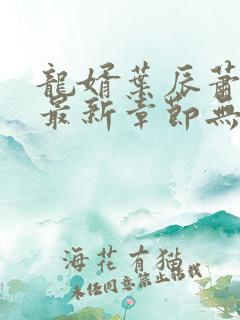 龍婿葉辰蕭
最新章節無
海花有猫
未经同意禁止转载